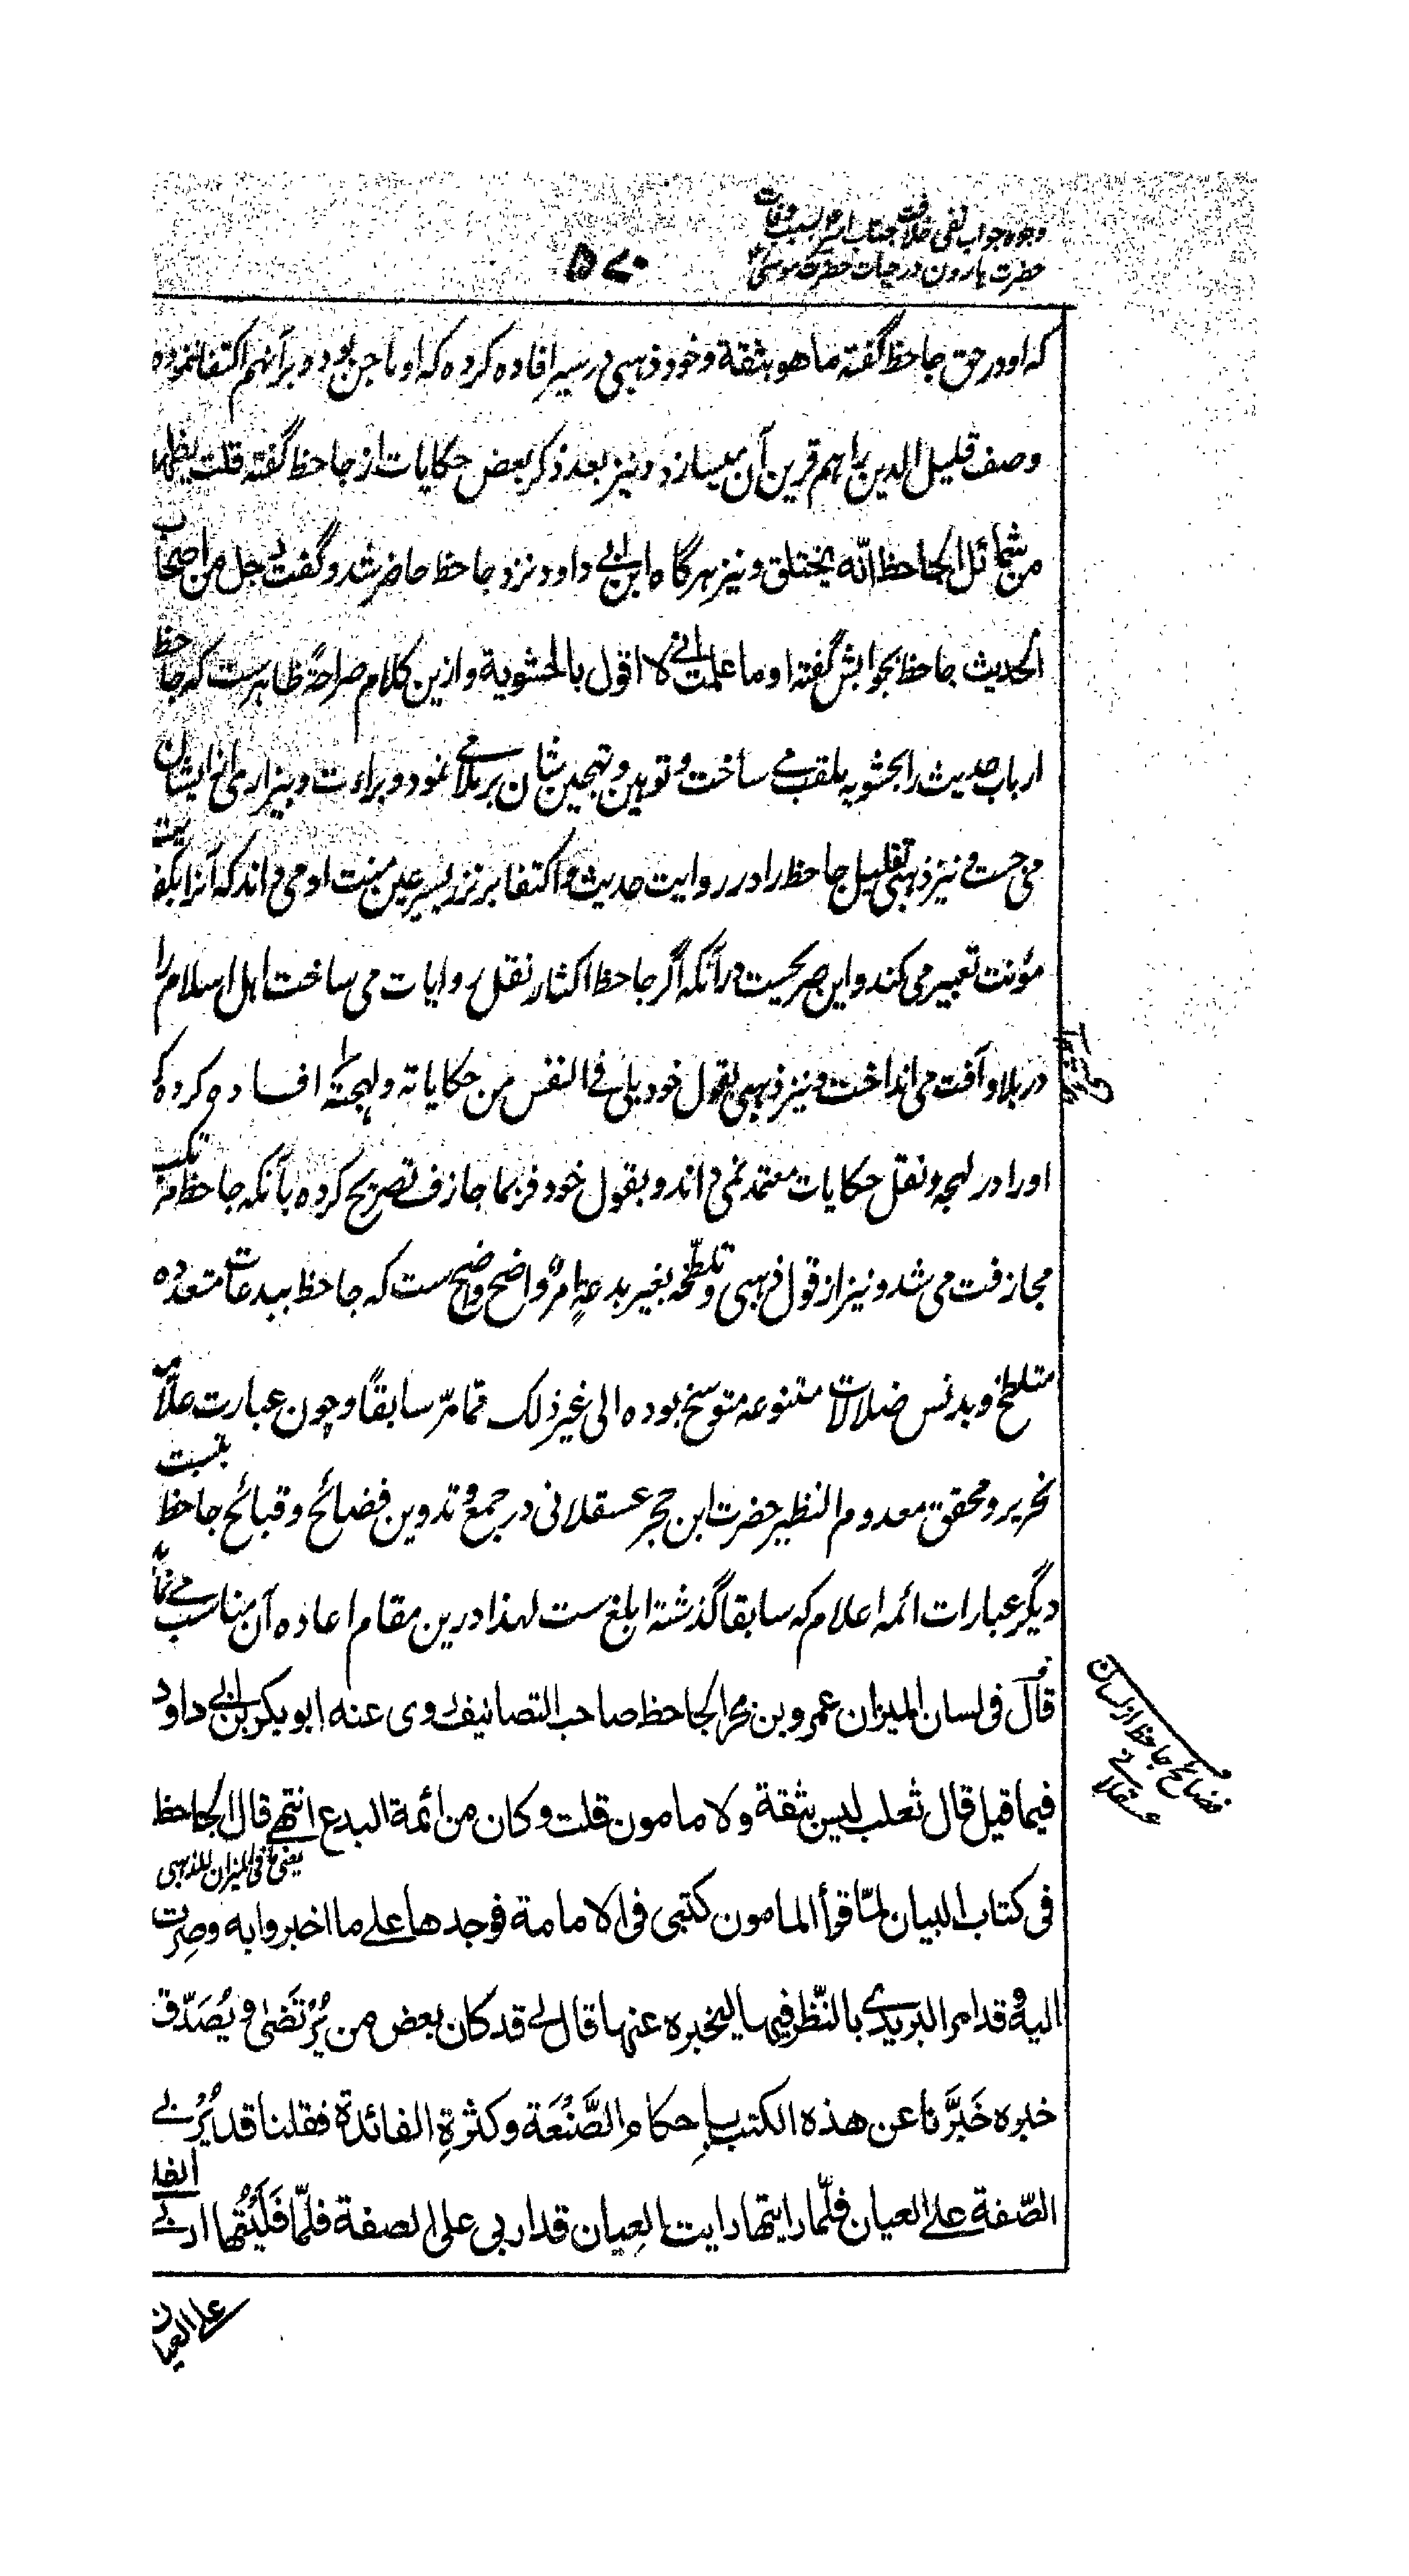 وجوه جواب نفی خلافت جناب امیرؑ بسبب وفات
حضرت هارون در حیات حضرت موسیؑ
۵۷۰
که او در حق جاحظ گفته ما هو بثقة و خود ذهبی در سیر افاده کرده که او ماجن بود و بر آنهم اکتفا نکرده
وصف قلیل الدین را هم قرین آن میسازد و نیز بعد ذکر بعض حکایات از جاحظ گفته قلت یظهر
من شمائل الجاحظ انّه یختلق و نیز هرگاه ابن ابی داود نزد جاحظ حاضر شد و گفت رجل من اصحاب
الحدیث جاحظ بجوابش گفته او ما علمت انی لا اقول بالحشویة و ازین کلام صراحةً ظاهرست که جاحظ
ارباب حدیث را بحشویه ملقب می ساخت و توهین و تهجین شان بر ملا می نمود و براءت و بیزاری از ایشان
می جست و نیز ذهبی تقلیل جاحظ را در روایت حدیث و اکتفا بر نزر یسیر عین منت او می داند که آنرا بکفایت
مؤنت تعبیر می کند و این صریحست در آنکه اگر جاحظ اکثار نقل روایات می ساخت اهل اسلام را
در بلا و آفت می انداخت و نیز ذهبی بقول خود یلی فی النفس من حکایاته و لهجته افاده کرده که
او را در لهجه و نقل حکایات معتمد نمی داند و بقول خود فربما جازف تصریح کرده بآنکه جاحظ مرتکب
مجازفت می شد و نیز از قول ذهبی و تلطّخه بغیر بدعةٍ امرٌ واضح واضح ست که جاحظ ببدعات متعدده
متلطخ و بدنس ضلالات متنوعه متوسخ بوده الی غیر ذلک ممّا مرّ سابقًا و چون عبارت علّامه
نحریر و محقق معدوم النظیر حضرت ابن حجر عسقلانی در جمع و تدوین فضائح و قبائح جاحظ بنسبت
دیگر عبارات ائمه اعلام که سابقا گذشته ابلغ ست لهذا درین مقام اعاده آن مناسب می نماید
قال فی لسان المیزان عمرو بن بحر الجاحظ صاحب التصانیف روی عنه ابو بکر بن ابی داود
فیما قیل قال ثعلب لیس بثقة ولا مامون قلت و کان من ائمة البدع انتهی قال الجاحظ
یعنی ما فی المیزان للذهبی
فی کتاب البیان لمّا قرأ المامون کتبی فی الامامة فوجدها علی ما اخبروا به و صرت
الیه و قد امر الیزیدی بالنّظر فیها لیخبره عنها قال لی قد کان بعض من یُرْتَضیٰ و یُصَدّق
خبره خَبَّرنا عن هذه الکتب بإحکام الصَّنْعَة و کثرةِ الفائدة فقلنا قد یُرْبی
الصّفة علی العیان فلمّا رایتها رایت العِیان قد اربی علی الصفة فلمّا فَلَیْتُها اربی الفلی
علی العیان
فضائح جاحظ از لسان
عسقلانی